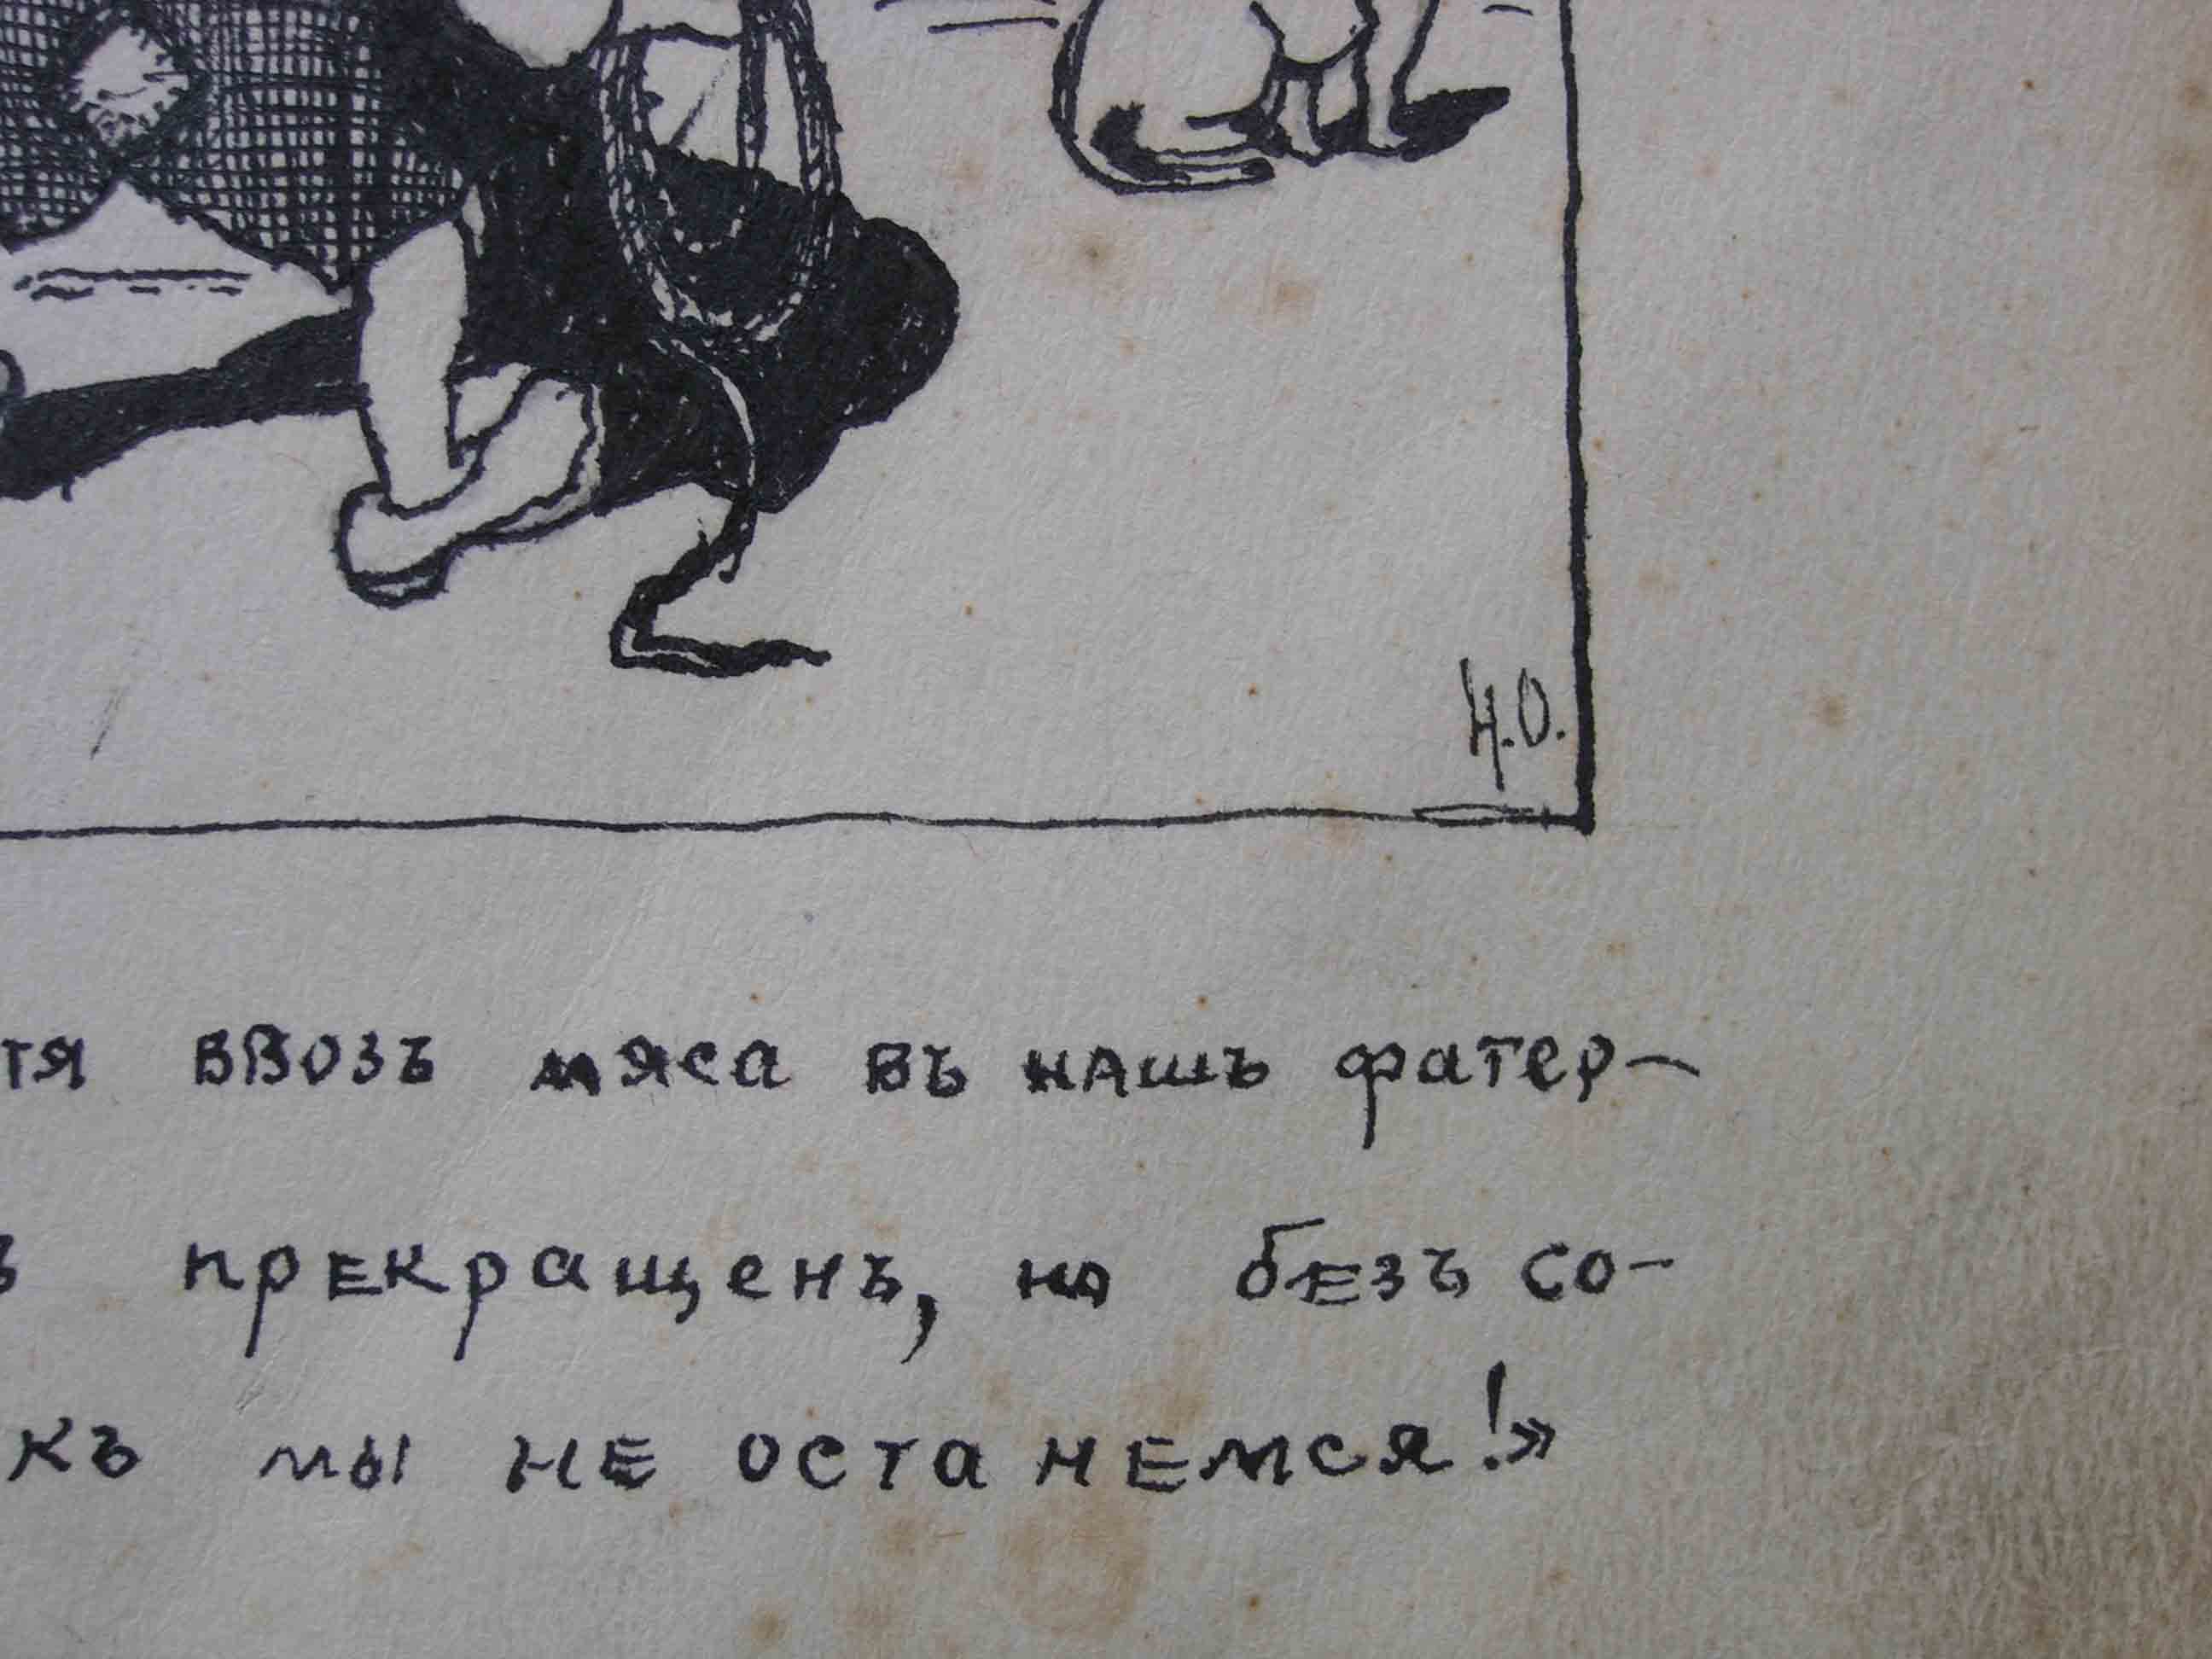 Н.О.
тя ввозъ мяса въ нашъ фатер-
ъ прекращенъ, но безъ со-
къ мы не останемся!»